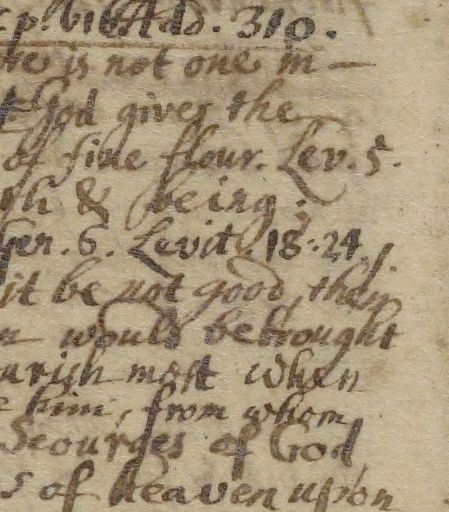 Add. 310.
is not one in
God gives the
of fine flour. Lev. 5.
& being
Gen. 6. Levit. 18. 24.
it be not good, then
would be brought
most when
him, from whom
Scourges of God
of heaven upon